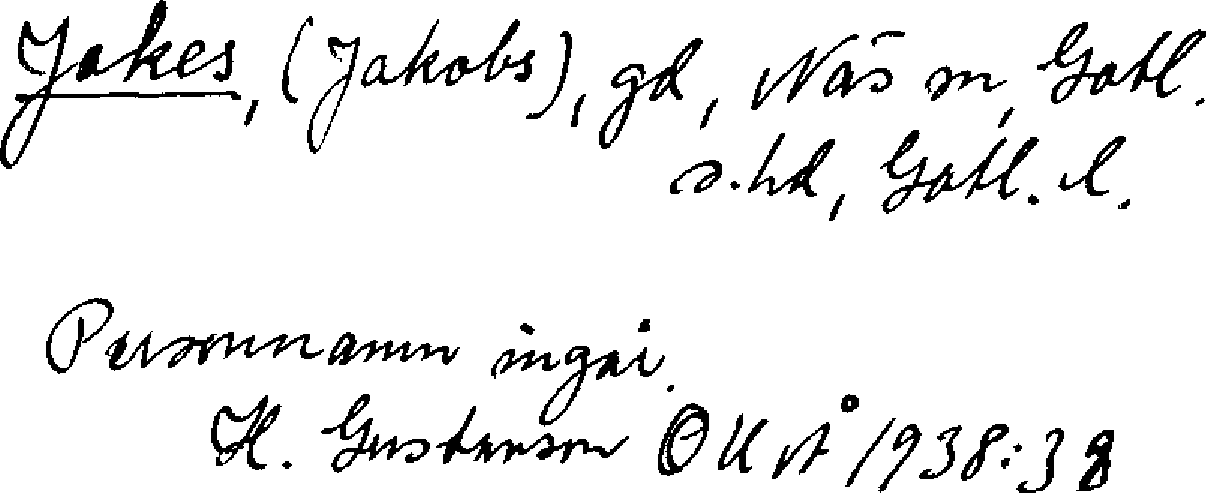 Jakes, (Jakobs), gd, Näs sn, Gotl.
s. hd, Gotl. l.
Personnamn ingår.
H. Gustavson OUÅ 1938:38